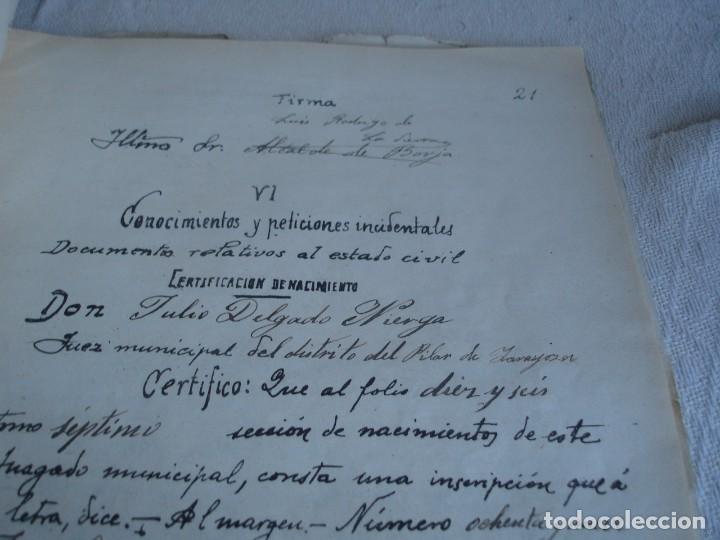 21
Firma
Luis Rodrigo de
La Sierra
Illmo Sr. Alcalde de Borja
VI
Conocimientos y peticiones incidentales
Documentos relativos al estado civil
CERTIFICACION DE NACIMIENTO
Don Julio Delgado Nierga
Juez municipal del distrito del Pilar de Zaragoza
Certifico: Que al folio diez y seis
tomo séptimo sección de nacimientos de este
Juzgado municipal, consta una inscripción que á
letra, dice.- Al margen.- Número ochenta
todocoleccion.net